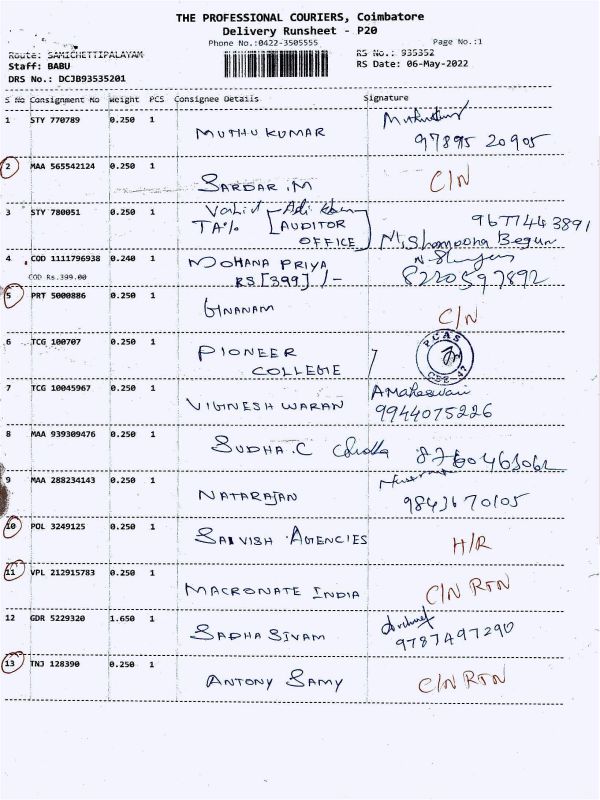 THE PROFESSIONAL COURIERS, Coimbatore
Delivery Runsheet - P20
Phone No.:0422-3505555 Page No.:1
Route: SAMICHETTIPALAYAM RS No.: 935352
Staff: BABU RS Date: 06-May-2022
DRS No.: DCJB93535201
S No Consignment No Weight PCS Consignee Details Signature
1 STY 770789 0.250 1 MUTHU KUMAR
97895 20905
2 MAA 565542124 0.250 1 SARDAR .M C/N
3 STY 780051 0.250 1
AUDITOR 9677443891
OFFICE
4 COD 1111796938 0.240 1 MOHANA PRIYA
COD Rs.399.00 RS [399] /- 8220597892
5 PRT 5000886 0.250 1 GNANAM C/N
6 TCG 100707 0.250 1 PIONEER
COLLEGIE
7 TCG 10045967 0.250 1 VIGINESH WARAN A Maheswari
9944075226
8 MAA 939309476 0.250 1 SUDHA .C
9 MAA 288234143 0.250 1 NATARAJAN
10 POL 3249125 0.250 1 SARVISH AGENCIES H/R
11 VPL 212915783 0.250 1 MACRONATE INDIA C/N RTN
12 GDR 5229320 1.650 1 SADHA SIVAM
9787497290
13 TNJ 128390 0.250 1 ANTONY SAMY C/N RTN